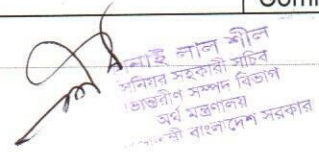 Com
নাই লাল শীল
সিনিয়র সহকারী সচিব
অভ্যন্তরীণ সম্পদ বিভাগ
অর্থ মন্ত্রণালয়
বাংলাদেশ সরকার